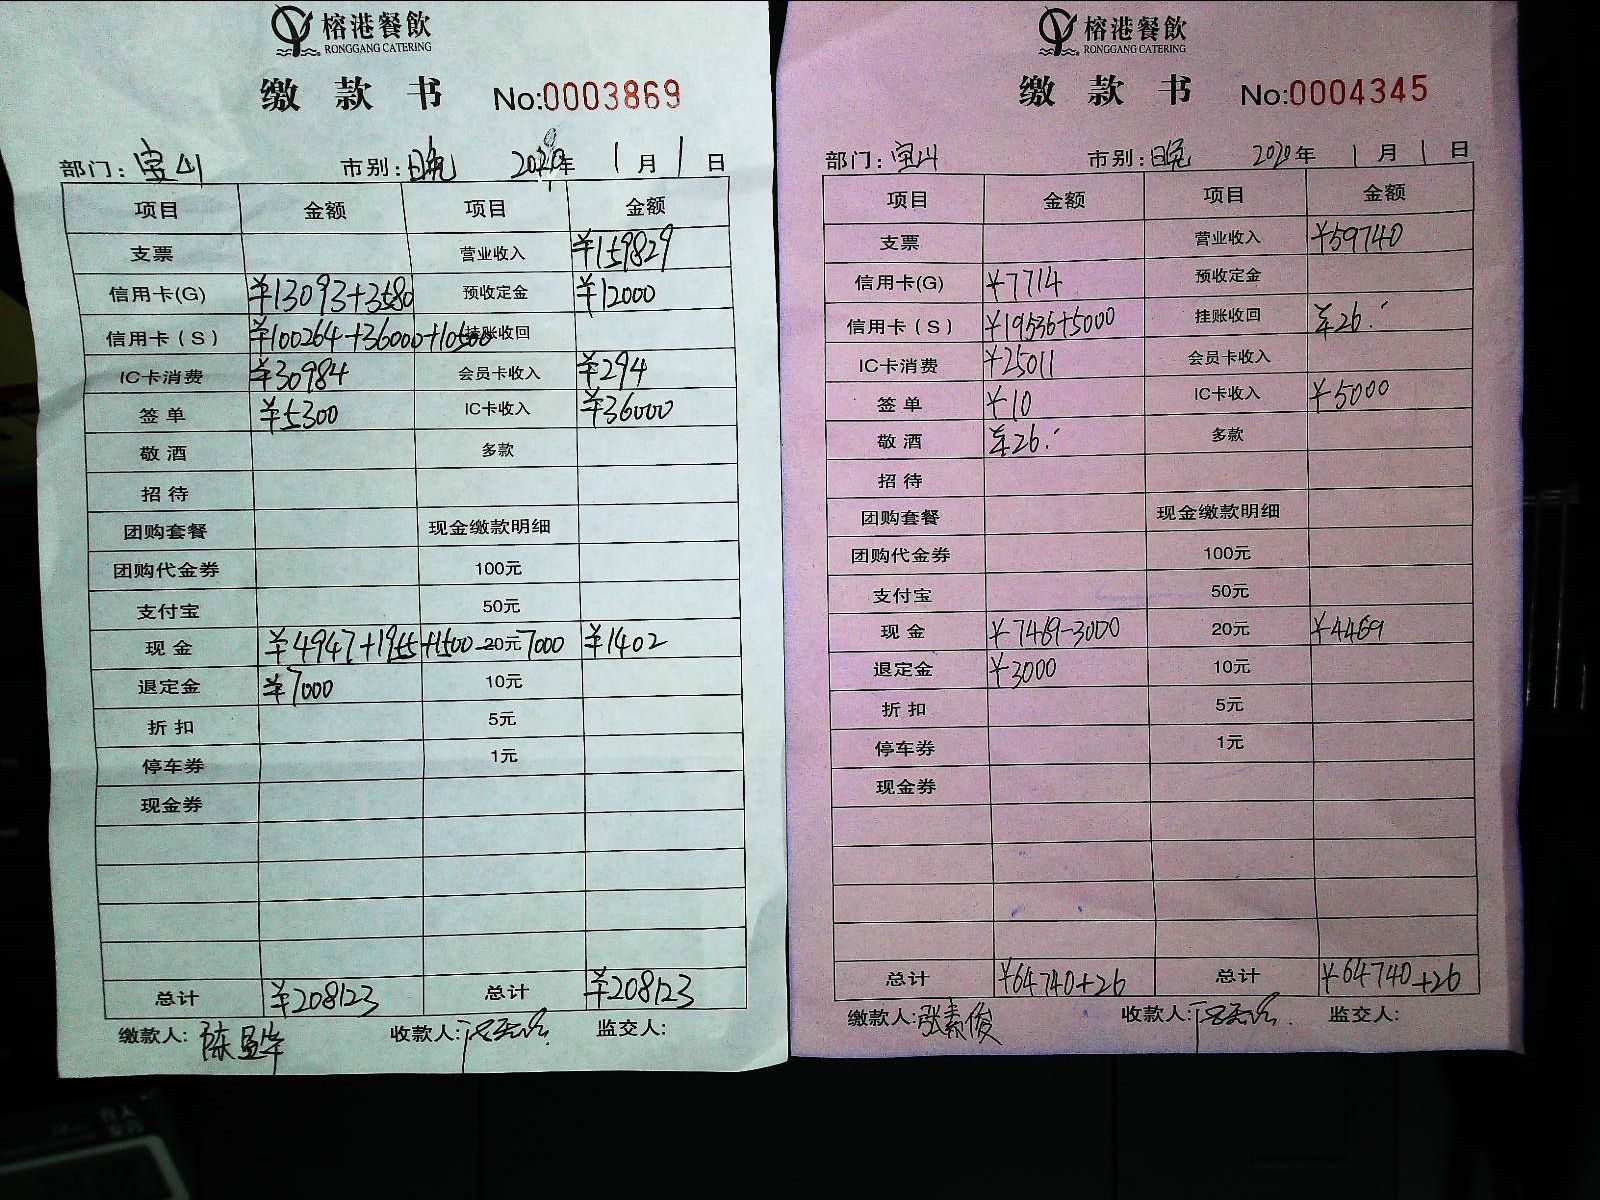 榕港餐飲
RONGGANG CATERING
缴款书 No:0003869
部门:宝山 市别:日晚 2020年 1月1日
项目 金额 项目 金额
支票 营业收入 ¥159829
信用卡(G) ¥13093+3580 预收定金 ¥12000
信用卡(S) ¥100264+36000+10500 挂账收回
IC卡消费 ¥30984 会员卡收入 ¥294
签单 ¥5300 IC卡收入 ¥36000
敬酒 多款
招待
团购套餐 现金缴款明细
团购代金券 100元
支付宝 50元
现金 ¥4947+1955+1500-7000 20元 ¥1402
退定金 ¥7000 10元
折扣 5元
停车券 1元
现金券
总计 ¥208123 总计 ¥208123
缴款人: 收款人: 监交人:
榕港餐飲
RONGGANG CATERING
缴款书 No:0004345
部门:宝山 市别:日晚 2020年 1月1日
项目 金额 项目 金额
支票 营业收入 ¥59740
信用卡(G) ¥7714 预收定金
信用卡(S) ¥19536+5000 挂账收回 ¥26.
IC卡消费 ¥25011 会员卡收入
签单 ¥10 IC卡收入 ¥5000
敬酒 ¥26. 多款
招待
团购套餐 现金缴款明细
团购代金券 100元
支付宝 50元
现金 ¥7469-3000 20元 ¥4469
退定金 ¥3000 10元
折扣 5元
停车券 1元
现金券
总计 ¥64740+26 总计 ¥64740+26
缴款人:张素俊 收款人: 监交人: